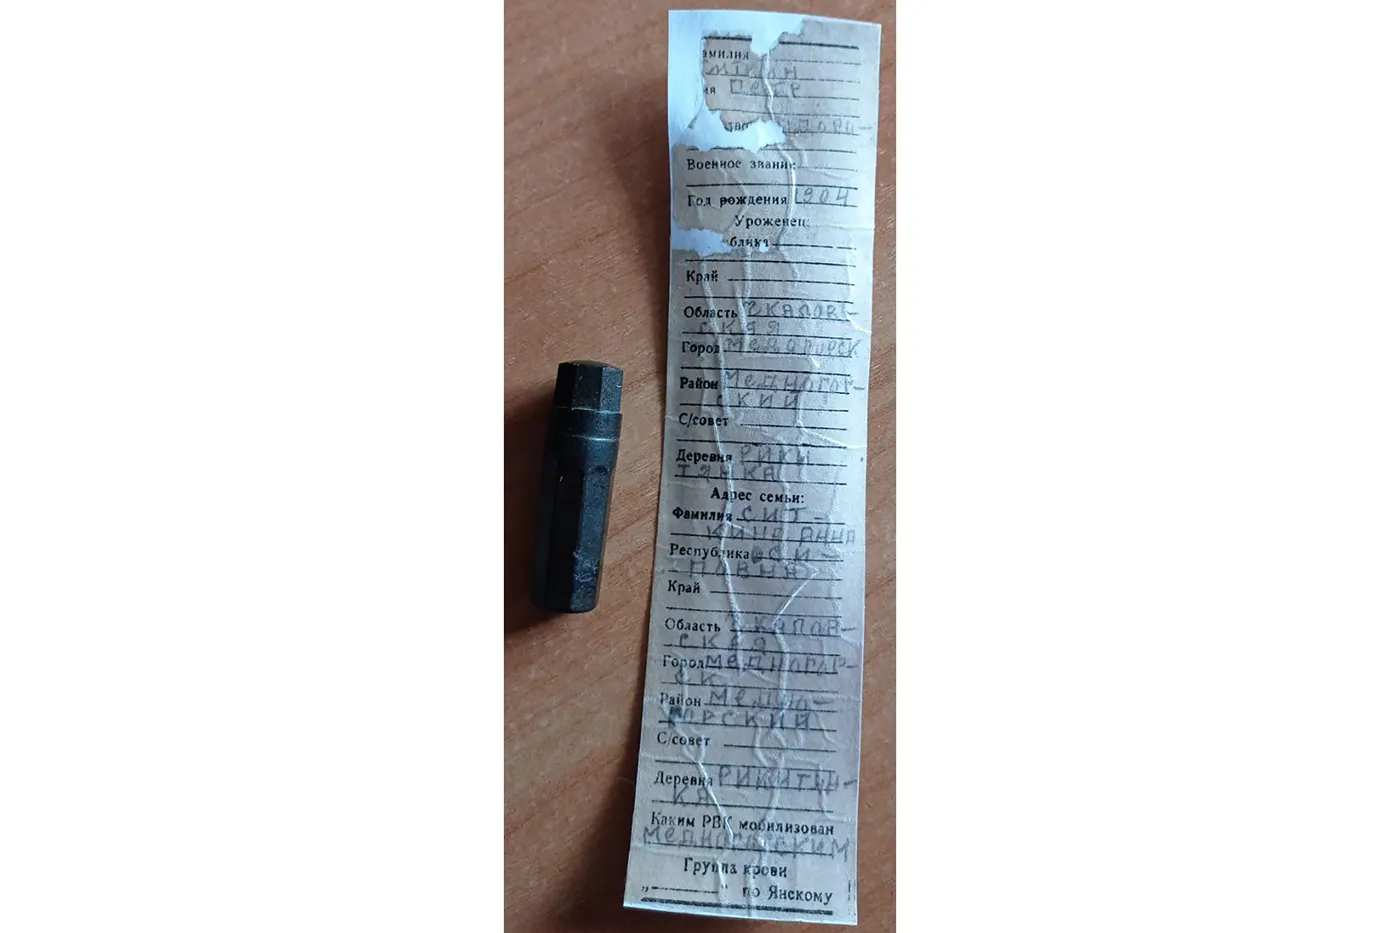 амилия
МІКИН
ия ПЕТР
тво ИДОРО-
Военное звание:
Год рождения 1904
Уроженец:
блика
Край
Область ЧКАЛОВ-
СКАЯ
Город МЕДНОГОРСК
Район МЕДНОГОР-
СКИЙ
С/совет
Деревня РИКИ
ТЯНКА
Адрес семьи:
Фамилия СИТ-
КИНА АННА
Республика ОСИ-
ПОВНА
Край
Область ЧКАЛОВ-
СКАЯ
Город МЕДНОГОР-
СК
Район МЕДНО-
ГОРСКИЙ
С/совет
Деревня РИКИТЯН-
КА
Каким РВК мобилизован
МЕДНОГОРСКИМ
Группа крови
„ “ по Янскому